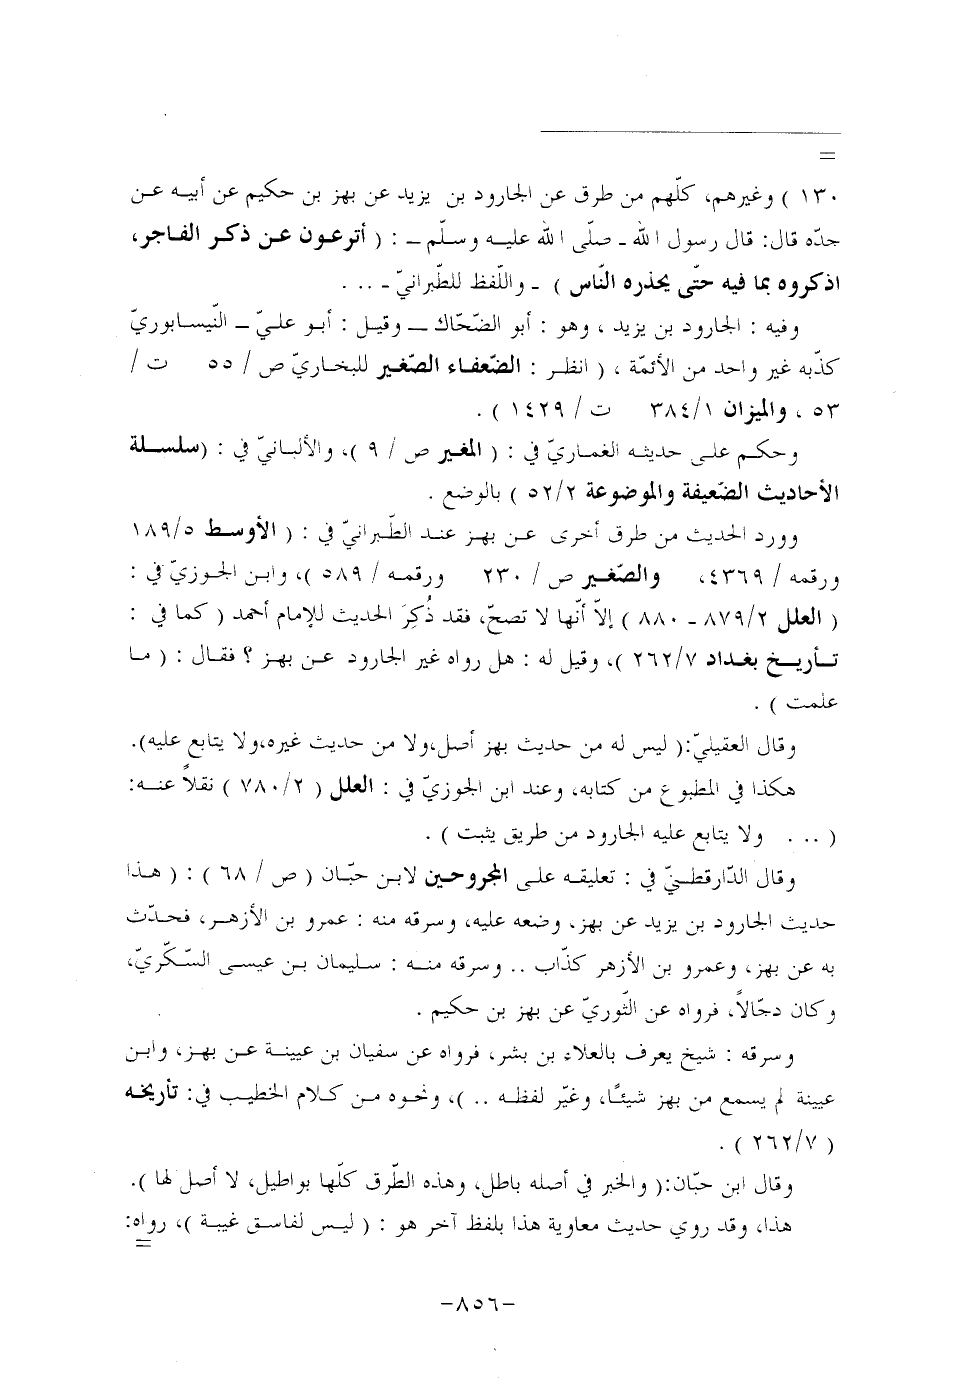 =
١٣٠ ) وغيرهم، كلّهم من طرق عن الجارود بن يزيد عن بهز بن حكيم عن أبيه عن
جدّه قال: قال رسول الله ـ صلّى الله عليه وسلّم ـ : ( أترعون عن ذكر الفاجر،
اذكروه بما فيه حتّى يحذره النّاس ) ـ واللّفظ للطّبرانيّ ـ .. .
وفيه : الجارود بن يزيد ، وهو : أبو الضّحّاك ــ وقيل : أبو عليّ ــ النّيسابوريّ
كذّبه غير واحد من الأئمّة ، ( انظر : الضّعفاء الصّغير للبخاريّ ص / ٥٥ ت /
٥٣ ، والميزان ٣٨٤/١ ت / ١٤٢٩ ) .
وحكم على حديثه الغماريّ في : ( المغير ص / ٩ )، والألبانيّ في : (سلسلة
الأحاديث الضّعيفة والموضوعة ٥٢/٢ ) بالوضع .
وورد الحديث من طرق أخرى عن بهز عند الطّبرانيّ في : ( الأوسط ١٨٩/٥
ورقمه / ٤٣٦٩، والصّغير ص / ٢٣٠ ورقمه / ٥٨٩ )، وابن الجوزيّ في :
( العلل ٨٧٩/٢ ـ ٨٨٠ ) إلاّ أنّها لا تصحّ، فقد ذُكِرَ الحديث للإمام أحمد ( كما في :
تأريخ بغداد ٢٦٢/٧ )، وقيل له : هل رواه غير الجارود عن بهز ؟ فقال : ( ما
علمت ) .
وقال العقيليّ:( ليس له من حديث بهز أصل،ولا من حديث غيره،ولا يتابع عليه).
هكذا في المطبوع من كتابه، وعند ابن الجوزيّ في : العلل ( ٧٨٠/٢ ) نقلاً عنه:
( .. . ولا يتابع عليه الجارود من طريق يثبت ) .
وقال الدّارقطنيّ في : تعليقه على المجروحين لابن حبّان ( ص / ٦٨ ) : ( هذا
حديث الجارود بن يزيد عن بهز، وضعه عليه، وسرقه منه : عمرو بن الأزهر، فحدّث
به عن بهز، وعمرو بن الأزهر كذّاب .. وسرقه منه : سليمان بن عيسى السّكّريّ،
وكان دجّالاً، فرواه عن الثّوريّ عن بهز بن حكيم .
وسرقه : شيخ يعرف بالعلاء بن بشر، فرواه عن سفيان بن عيينة عن بهز، وابن
عيينة لم يسمع من بهز شيئًا، وغيّر لفظه .. )، ونحوه من كلام الخطيب في: تأريخه
( ٢٦٢/٧ ) .
وقال ابن حبّان:( والخبر في أصله باطل، وهذه الطّرق كلّها بواطيل، لا أصل لها ).
هذا، وقد روي حديث معاوية هذا بلفظ آخر هو : ( ليس لفاسق غيبة )، رواه:
=
-٨٥٦-